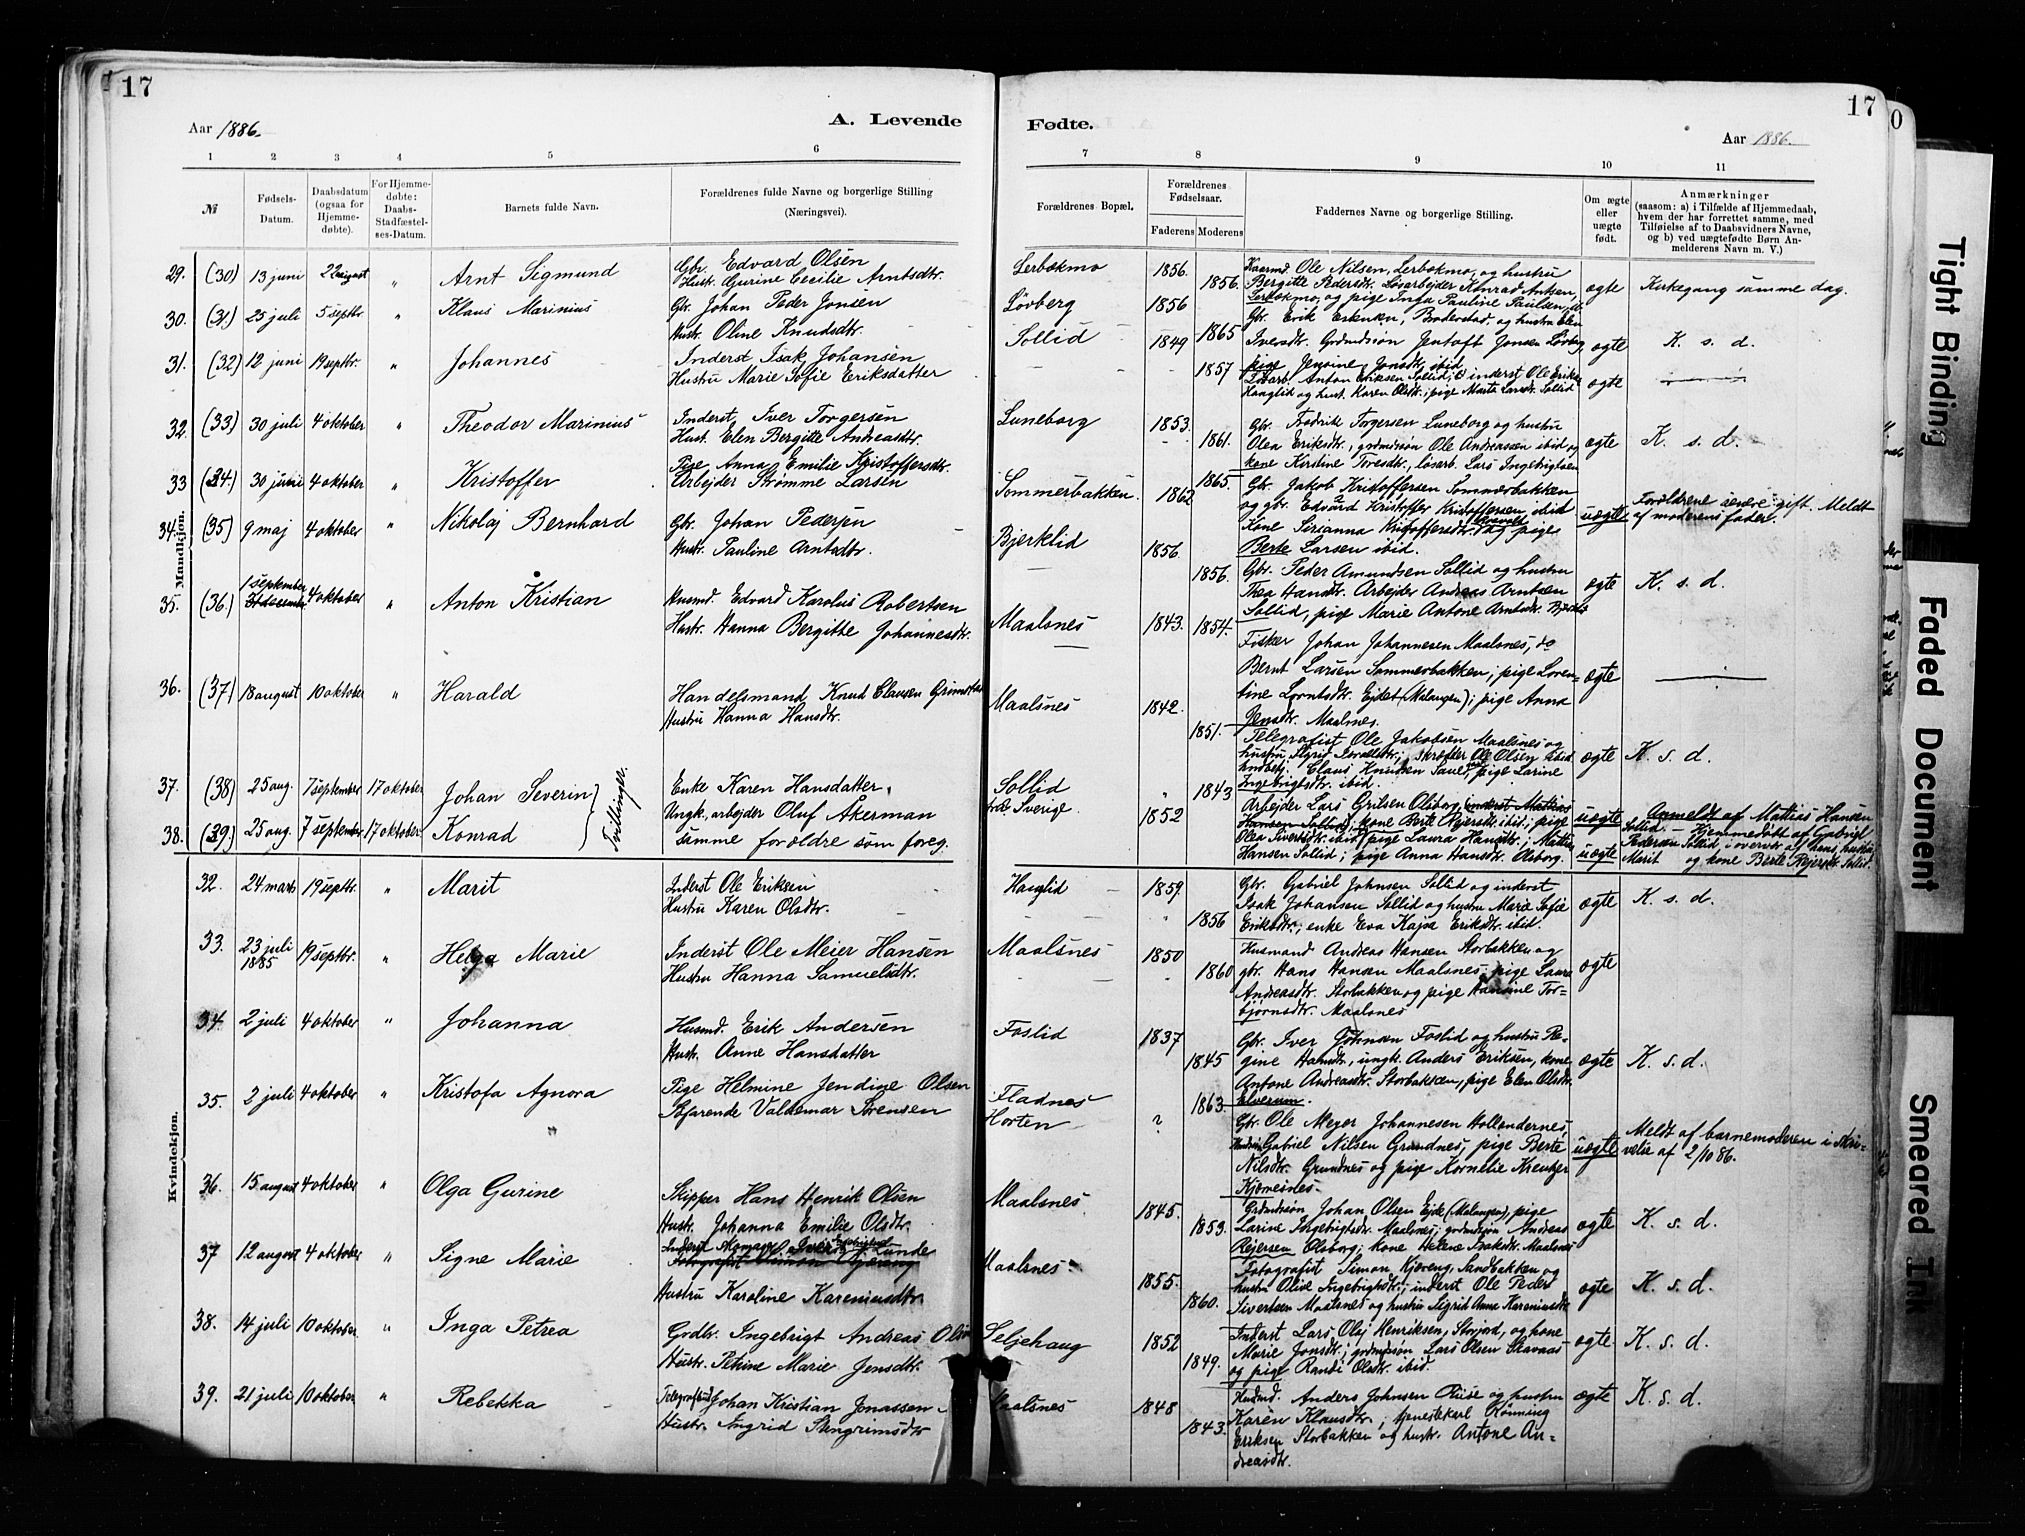 17
Aar 1886.
A. Levende
1 2 3 4 5 6
№
Fødsels-
Datum.
Daabsdatum
(ogsaa for
Hjemme-
døbte).
For Hjemme-
døbte:
Daabs-
Stadfæstel-
ses-Datum.
Barnets fulde Navn.
Forældrenes fulde Navne og borgerlige Stilling
(Næringsvei).
Mandkjøn.
29. (30) 13 juni 22 august " Arnt Sigmund
Gbr. Edvard Olsen
Hust. Gjurine Cecilie Arntsdtr.
30. (31) 25 juli 5 septbr. " Klaus Marinius
Gbr. Johan Peder Jonsen
Hustr. Oline Knudsdtr.
31. (32) 12 juni 19 septbr. " Johannes
Inderst Isak Johansen
Hustru Marie Sofie Eriksdatter
32. (33) 30 juli 4 oktober " Theodor Marinius
Inderst Iver Torgersen
Hust. Elen Bergitte Andreasdtr.
33 (34.) 30 juni 4 oktober " Kristoffer
Pige Anna Emilie Kristoffersdtr.
Arbejder Strømme Larsen
34. (35) 9 maj 4 oktober " Nikolaj Bernhard
Gbr. Johan Pedersen
Hustr. Pauline Arntsdtr.
35. (36.) 1 september 4 oktober " Anton Kristian
Husmd. Edvard Karolus Robertsen
Hustr. Hanna Bergitte Johannesdtr.
36. (37) 18 august 10 oktober " Harald
Handelsmand Knud Clausen Grimstad
Hustru Hanna Hansdtr.
37. (38) 25 aug. 7 september 17 oktober Johan Severin
Enke Karen Hansdatter
Ungk. arbejder Oluf Åkerman
38. (39) 25 aug. 7 september 17 oktober. Konrad
Tvillinger.
samme forældre som foreg.
Kvindekjøn.
32. 24 marts 19 septbr. " Marit
Inderst Ole Eriksen
Hustru Karen Olsdtr.
33. 23 juli 1885 19 septbr. " Helga Marie
Inderst Ole Meier Hansen
Hustru Hanna Samuelsdtr.
34. 2 juli 4 oktober " Johanna
Husmd. Erik Andersen
Hustr. Anne Hansdatter
35. 2 juli 4 oktober " Kristofa Agnora
Pige Helmine Jendine Olsen
Søfarende Valdemar Sørensen
36. 15 august 4 oktober " Olga Gurine
Skipper Hans Henrik Olsen
Hustr. Johanna Emilie Olsdtr.
37 12 august 4 oktober " Signe Marie
Hustru Karoline Kareniusdtr.
38. 14 juli 10 oktober. " Inga Petrea
Grdbr. Ingebrigt Andreas
Hustr. Petrine Marie Jensdtr.
39. 21 juli 10 oktober " Rebekka
Johan Kristian Jonassen
Hustr. Ingrid Stengrimsdtr
17
Fødte.
Aar 1886.
7 8 9 10 11
Forældrenes Bopæl.
Forældrenes
Fødselsaar.
Faderens Moderens
Faddernes Navne og borgerlige Stilling.
Om ægte
eller
uægte
født.
Anmærkninger
(saasom: a) i Tilfælde af Hjemmedaab,
hvem der har forrettet samme, med
Tilføielse af to Daabsvidners Navne,
og b) ved uægtefødte Børn An-
melderens Navn m. V.)
Lerbakmo 1856. 1856.
Ole Nilsen, Lerbakmo, og hustru
Bergitte Pedersdtr. Løsarbejder Konrad Antsen,
Lerbakmo, og pige Inga Pauline Paulsen
ægte Kirkegang samme dag.
Løvberg 1856 1865
Gbr. Erik og hustru Elen
Iversdtr. Grdmdsøn Jentoft Jonsen Løvberg
pige Jensine Jonsdtr. ibid.
ægte K. s. d.
Sollid 1849 1857
Løsarb. Anton Eriksen Sollid, inderst Ole Eriksen
Haaglid og hust. Karen Olsdtr.; pige Marta Sollid
ægte
Luneborg 1853. 1861.
Gbr. Fredrik Torgersen Luneborg og hustru
Olea Eriksdtr., grdmdsøn Ole Andreassen ibid og
kone Kirstine Toresdtr., løsarb. Lars Ingebrigtsen
ægte K. s. d.
Sommerbakken. 1862 1865.
Gbr. Jakob Kristoffersen Sommerbakken
og gbr. Edvard Kristoffer Kristoffersen ibid
Kone Sirianna Kristoffersdtr. og pige
Berte Larsen ibid.
uægte
Forældrene senere gift. Meldt
af moderens fader.
Bjerklid 1856. 1856.
Gbr. Peder Amundsen Sollid og hustru
Thea Hansdtr. Arbejder Andreas Arntsen
Sollid, pige Marie Antone Arntsdtr.
ægte K. s. d.
Maalsnes 1843. 1854.
Fisker Johan Johannesen Maalsnes, do
Bernt Larsen Sommerbakken; pige Loren-
tine Lorntsdtr. Ejdet (Malangen); pige Anna
Jensdtr. Maalsnes.
ægte
Maalsnes 1842. 1851.
Telegrafist Ole Jakobsen Maalsnes og
hustru Sigrid; Ole Olsen ibid
Claus Knudsen, pige Larine
Ingebrigtsdtr. ibid.
ægte K. s. d.
Sollid " 1843
Sverige. 1852
Arbejder Lars Olsborg, inderst Mattias
Hansen Sollid; kone Berte Rejersdtr. ibid.; pige
Olea Sivertsdtr. ibid; pige Laura Hansdtr.; Mattis
Hansen Sollid; pige Anna Hansdtr. Olsborg.
uægte
uægte
Anmeldt af Mattias Hansen
Sollid. — Hjemmedøbt af Gabriel
Pedersen Sollid i overvær af hans hustru
Marit og kone Berte Rejersdtr. Sollid.
Haaglid 1859 1856
Gbr. Gabriel Johnsen Sollid og inderst
Isak Johansen Sollid og hustru Marie Sofie
Eriksdtr; enke Eva Kajsa Eriksdtr. ibid.
ægte K. s. d.
Maalsnes 1850 1860
Husmand Andreas Hansen Storbakken og
gbr. Hans Hansen Maalsnes, pige Laura
Andreasdtr. Storbakken og pige Hansine Tor-
bjørnsdtr. Maalsnes
ægte
Foslid 1837 1845
Gbr. Iver Johnsen Foslid og hustru Re-
gine Hansdtr., ungk. Anders Eriksen, kone
Antone Andreasdtr. Storbakken, pige Elen Olsdtr.
Elverum.
ægte K. s. d.
Fladnes
Horten ? 1863.
Gbr. Ole Meyer Johannesen Hollendernes,
Gabriel Nilsen Grundnes, pige Berte
Nilsdtr. Grundnes og pige Kornelie Kreutzer
Kjerresnes.
uægte
Meldt af barnemoderen i skri-
velse af 2/10 86.
Maalsnes 1845. 1853.
Grdmdsøn Johan Olsen Ejde (Malangen), pige
Larine Ingebrigtsdtr. Maalsnes; grdmdsøn Andreas
Rejersen Olsborg; kone Helene Isaksdtr. Maalsnes
ægte K. s. d.
Maalsnes. 1855. 1860.
Fotografist Simon Kjøreng, Sandbakken og
hustru Olise Ingebrigtsdtr.; inderst Ole Peder
Sivertsen Maalsnes og hustru Sigrid Anna Kareniusdtr
ægte K. s. d.
Seljehaug 1852 1849.
Inderst Lars Olej Henriksen, Storjord, og kone
Marie Jonsdtr; grdmdsøn Lars Olsen Skavaas
og pige Randi Olsdtr. ibid.
ægte K. s. d.
Maalsnes 1848 1843.
Husmd. Anders Johnsen Ruse og hustru
Karen Klausdtr., tjenestekarl Rønning
Eriksen Storbakken og hustr. Antone An-
dreasdtr.
ægte K. s. d.
Tight Binding
Faded Document
Smeared Ink